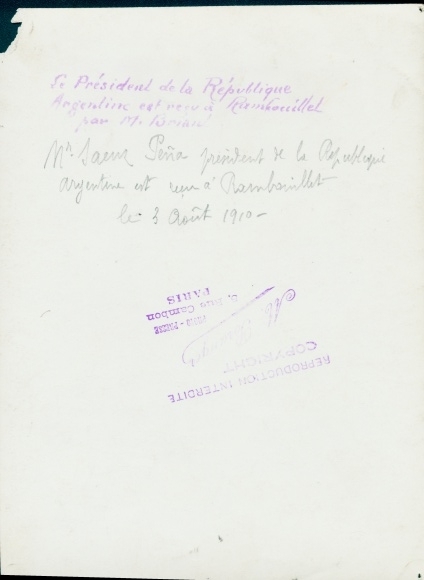 Le Président de la République
Argentine est reçu à Rambouillet
par M. Briand
Mr Saenz Peña président de la République
argentine est reçu à Rambouillet
le 3 Août 1910 -
REPRODUCTION INTERDITE
COPYRIGHT
Rue Cambon
PARIS